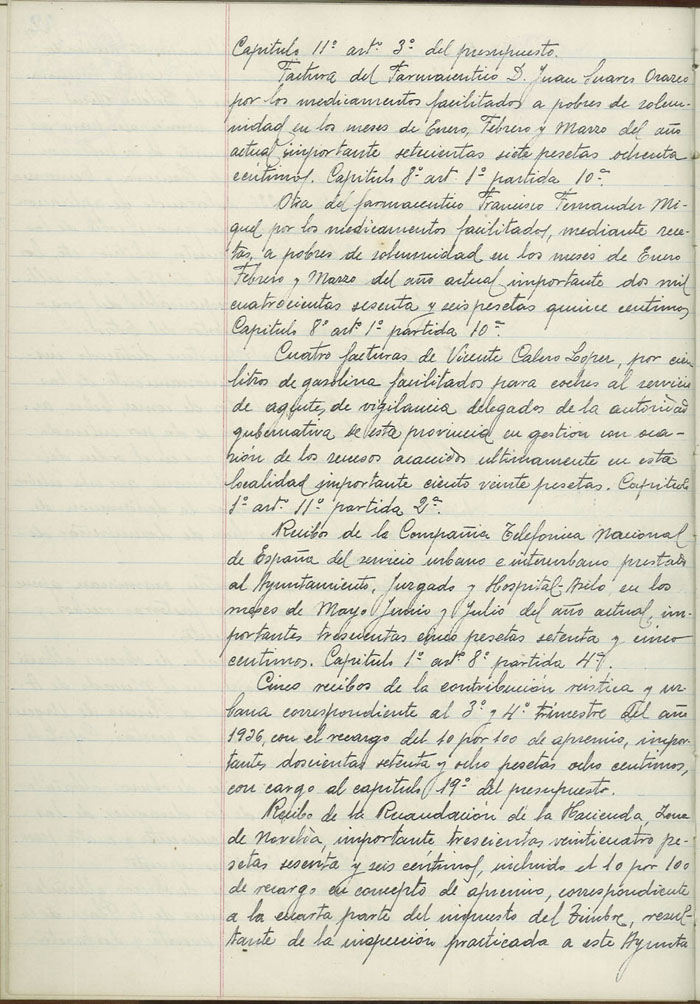 Capitulo 11º artº 3º del presupuesto.
Factura del Farmaceutico D. Juan Suares
por los medicamentos facilitados a pobres de solem-
nidad en los meses de Enero, Febrero y Marzo del año
actual importante setecientas siete pesetas ochenta
centimos. Capitulo 8º artº 1º partida 10ª
Otra del farmaceutico Francisco Fernandez Mi-
guel por los medicamentos facilitados, mediante rece-
tas, a pobres de solemnidad en los meses de Enero
Febrero y Marzo del año actual importante dos mil
cuatrocientas sesenta y seis pesetas quince centimos
Capitulo 8º artº 1º partida 10ª
Cuatro facturas de Vicente Calero Lopez, por cien
litros de gasolina facilitados para coches al servicio
de agente, de vigilancia delegados de la autoridad
gubernativa se esta provincia en gestión con oca-
sion de los sucesos acaecidos ultimamente en esta
localidad importante ciento veinte pesetas. Capitulo
1º artº 11º partida 2ª.
Recibo de la Compañia Telefonica Nacional
de España del servicio urbano e interurbano prestado
al Ayuntamiento, Juzgado y Hospital-Asilo en los
meses de Mayo Junio y Julio del año actual, im-
portantes trescientas cinco pesetas setenta y cinco
centimos. Capitulo 1º artº 8º partida 4ª.
Cinco recibos de la contribución rústica y ur-
bana correspondiente al 3º y 4º trimestre del año
1936, con el recargo del 10 por 100 de apremio, impor-
tantes doscientas setenta y ocho pesetas ocho centimos,
con cargo al capitulo 19º del presupuesto.
Recibo de la Recaudación de la Hacienda, Zona
de Novelda, importante trescientas veinticuatro pe-
setas sesenta y seis centimos, incluido el 10 por 100
de recargo en concepto de apremio, correspondiente
a la cuarta parte del impuesto del Timbre, resul-
tante de la inspección practicada a este Ayunta